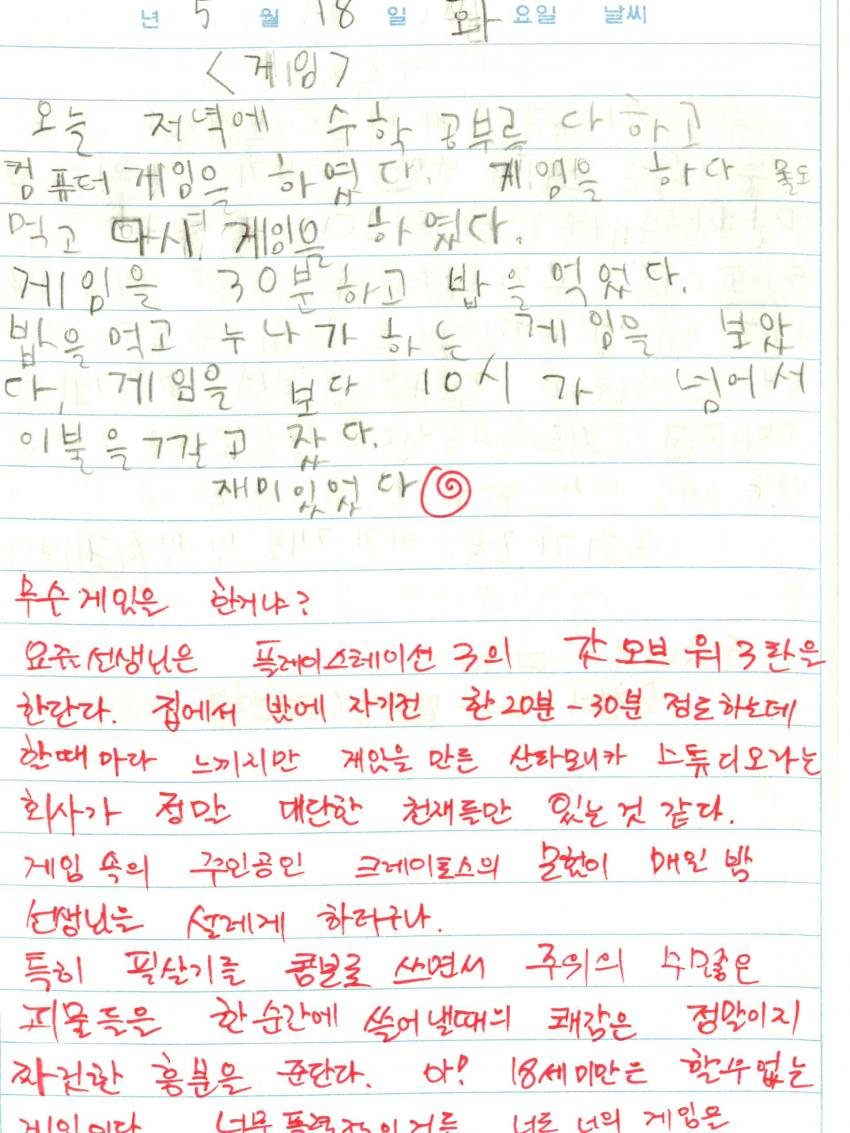 년 5 월 18 일 화 요일 날씨
<게임>
오늘 저녁에 수학 공부를 다 하고
컴퓨터 게임을 하였다. 게임을 하다 물도
먹고 다시 게임을 하였다.
게임을 30분하고 밥을 먹었다.
밥을 먹고 누나가 하는 게임을 보았
다. 게임을 보다 10시가 넘어서
이불을 깔고 잤다.
재미있었다
무슨 게임을 한거냐?
요즘 선생님은 플레이스테이션 3의 갓 오브 워 3 란을
한단다. 집에서 밤에 자기전 한 20분-30분 정도 하는데
할때 마다 느끼지만 게임을 만든 산타모니카 스튜디오라는
회사가 정말 대단한 천재들만 있는 것 같다.
게임 속의 주인공인 크레이토스의 모험이 매일 밤
선생님을 설레게 하더구나.
특히 필살기를 콤보로 쓰면서 주위의 수많은
괴물들을 한 순간에 쓸어낼때의 쾌감은 정말이지
짜릿한 흥분을 준단다. 아! 18세 미만은 할수 없는
게임이다 너무 폭력적이거든 너는 너의 게임을